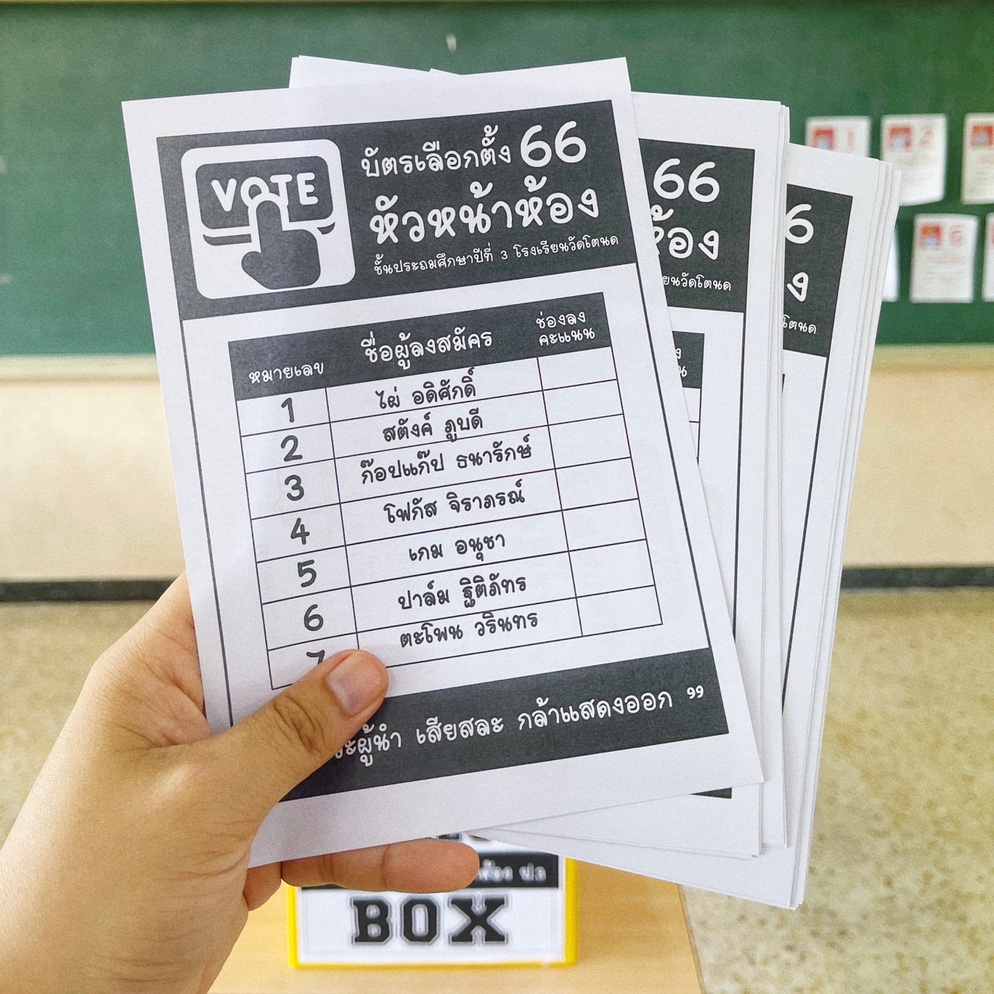 VOTE
บัตรเลือกตั้ง 66
หัวหน้าห้อง
ชั้นประถมศึกษาปีที่ 3 โรงเรียนวัดโตนด
หมายเลข ชื่อผู้ลงสมัคร ช่องลงคะแนน
1 ไผ่ อดิศักดิ์
2 สตังค์ ภูบดี
3 ก๊อปแก๊ป ธนารักษ์
4 โฟกัส จิราภรณ์
5 เกม อนุชา
6 ปาล์ม ฐิติภัทร
7 ตะโพน วรินทร
ผู้นำ เสียสละ กล้าแสดงออก ”
66
ห้อง
ยนวัดโตนด
6
ง
โตนด
1
2
6
BOX